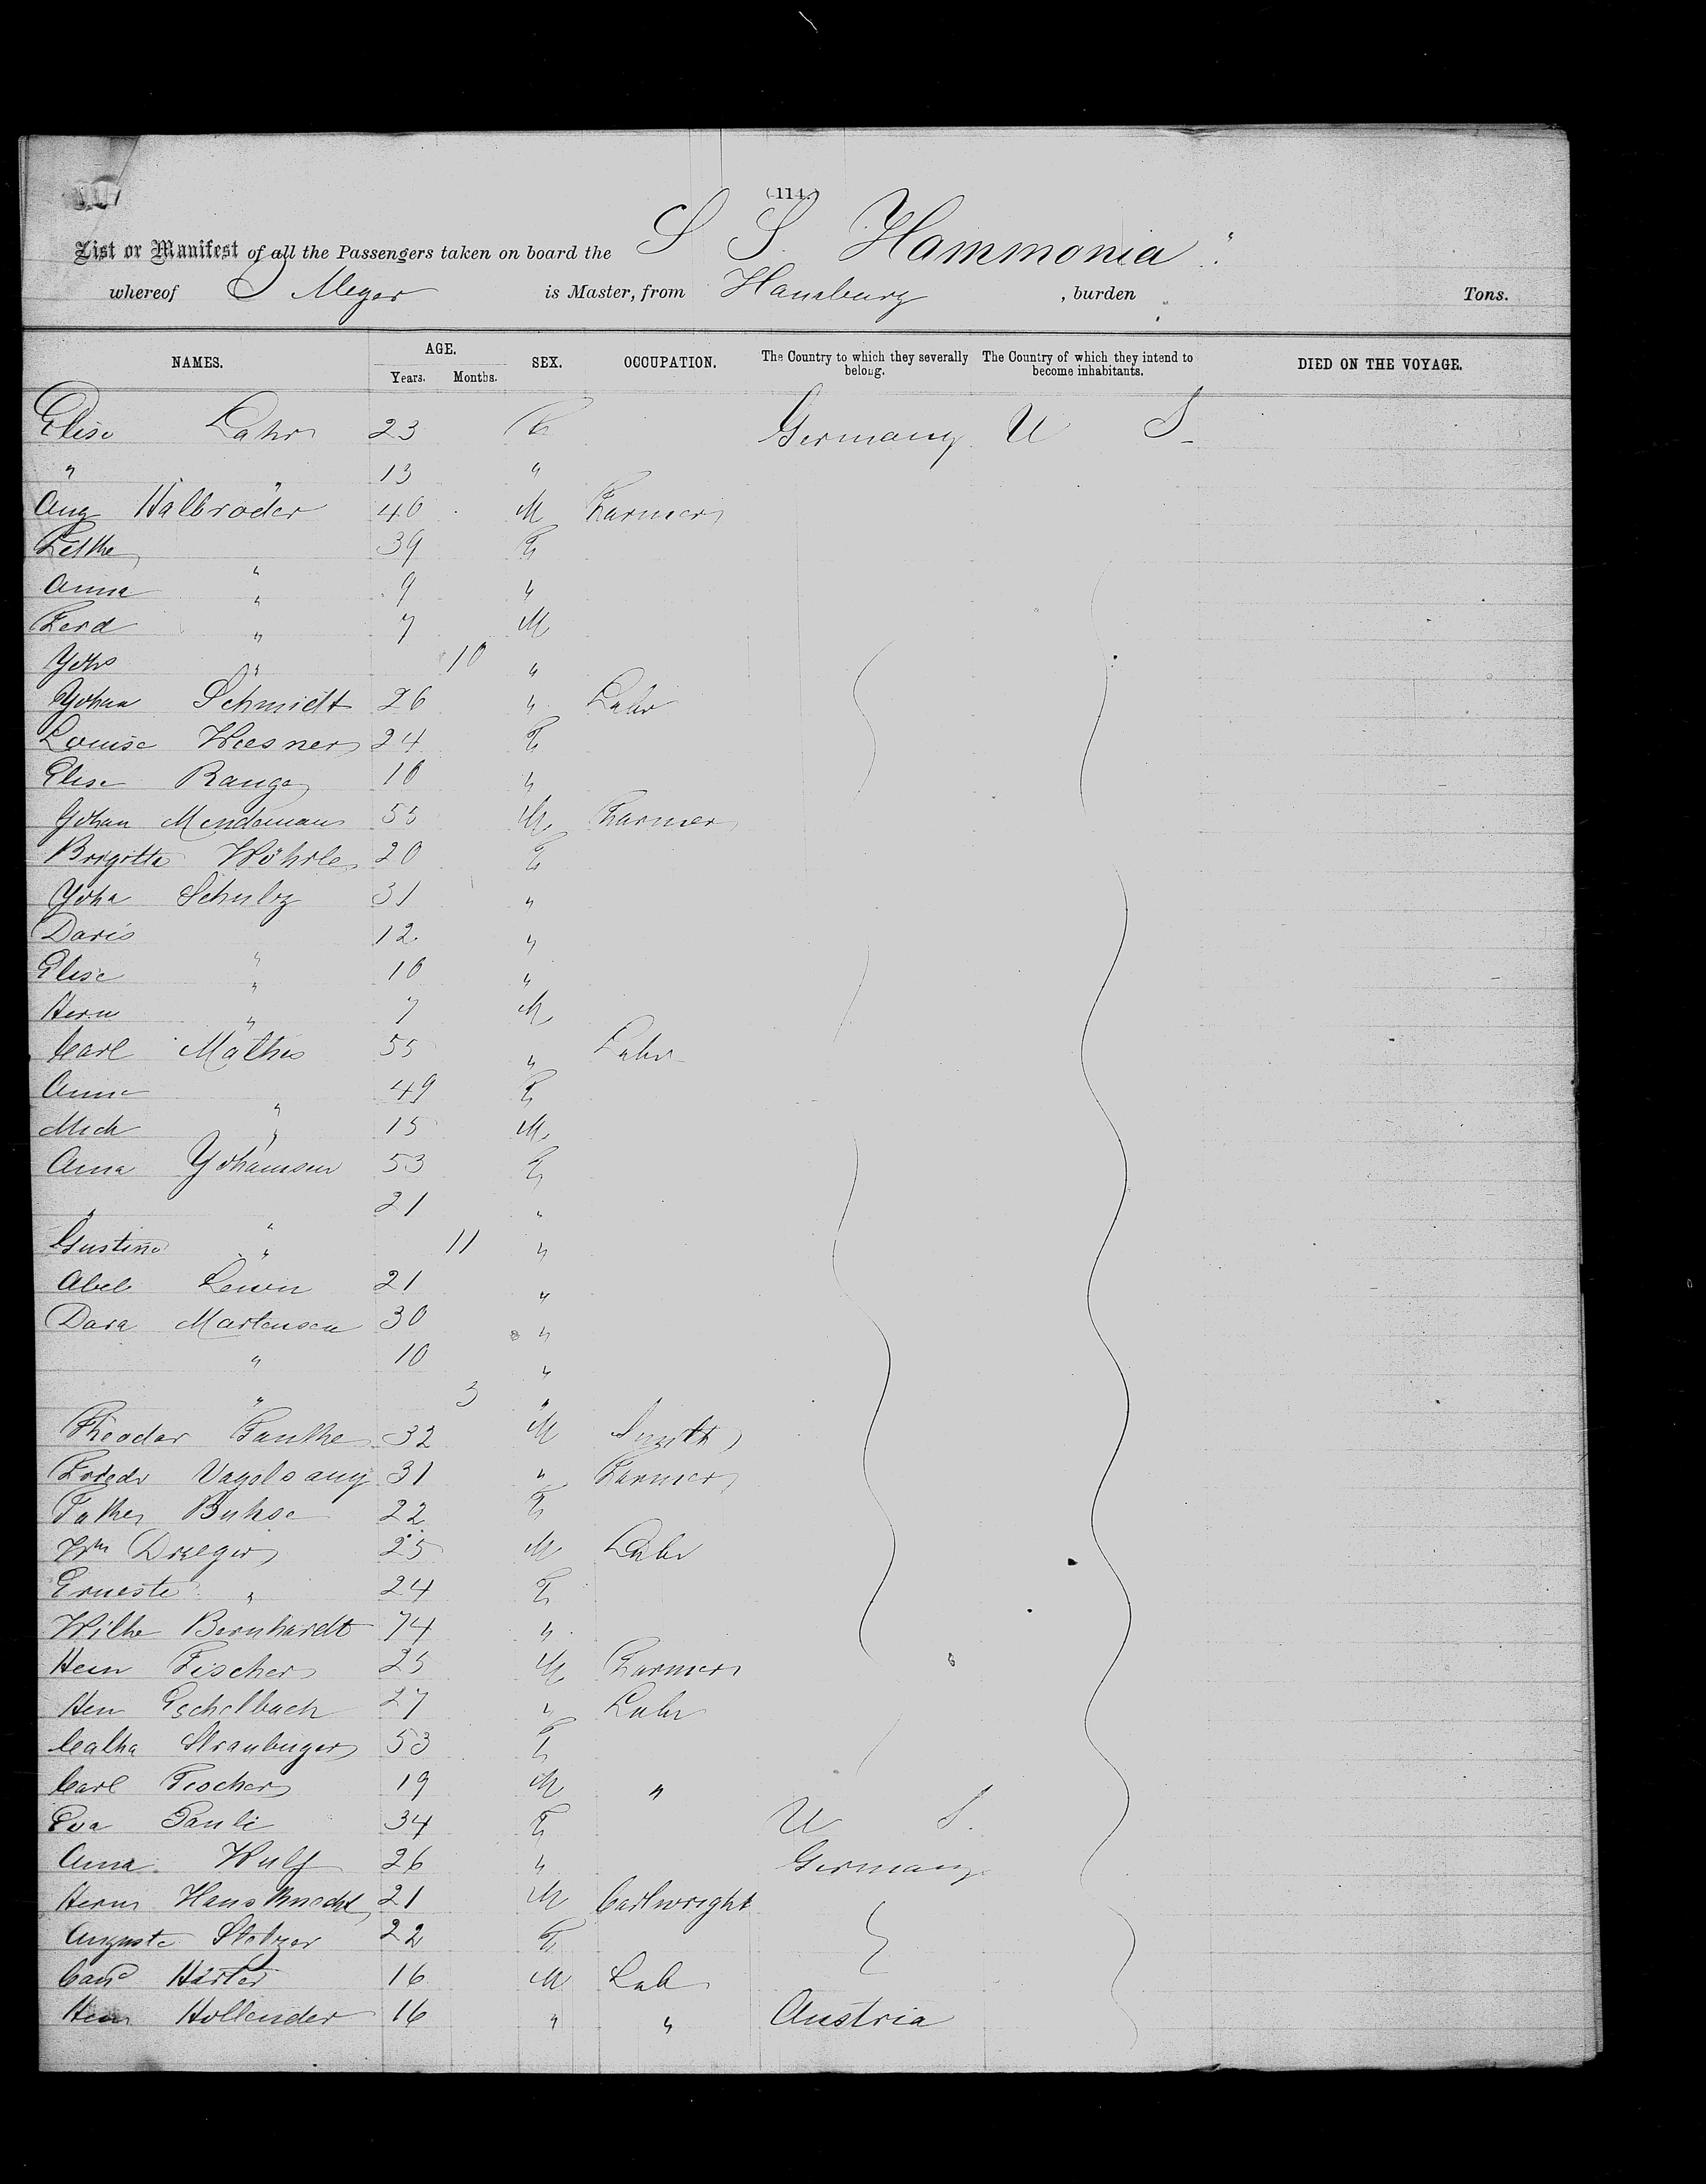 (114.)
List or Manifest of all the Passengers taken on board the S S. Hammonia
whereof Meyer is Master, from Hamburg , burden Tons.
NAMES. AGE. SEX. OCCUPATION. The Country to which they severally belong. The Country of which they intend to become inhabitants. DIED ON THE VOYAGE.
Years. Months.
Elise Lahr 23 F Germany U S
" " 13 "
Aug Halbroder 40 M Farmer
39 F
Anna " 9 "
Ferd " 7 M
" 10 "
Johan Schmidt 26 " Labr
Louise Wiesner 24 F
Elise Range 10 "
Johan Mendeman 55 M Farmer
Brigitta Wöhrle 20 F
Joha Schulz 31 "
Doris " 12 "
Elise " 10 "
Herm " 7 M
Carl Mathis 55 " Labr
Anna " 49 F
Mich " 15 M
Anna Johannsen 53 F
" " 21 "
Gustine " 11 "
Abel Lewin 21 "
Dora Martensen 30 "
" 10 "
" 3 "
Theodor Panthe 32 M Smith
Friedr Vogelsang 31 " Farmer
Buhse 22 F
Wm Draeger 25 M Labr
Erneste " 24 F
Wilhe Bernhardt 74 "
Hein Fischer 25 M Farmer
Hen Eschelbach 27 " Labr
Catha Stranberger 53 F
Carl Fischer 19 M "
Eva Pauli 34 F U S.
Anna Wulf 26 " Germany
Herm Hausknecht 21 M Cartwright
Auguste Stelzer 22 F
Härter 16 M Lab
Hein Hollender 16 " " Austria